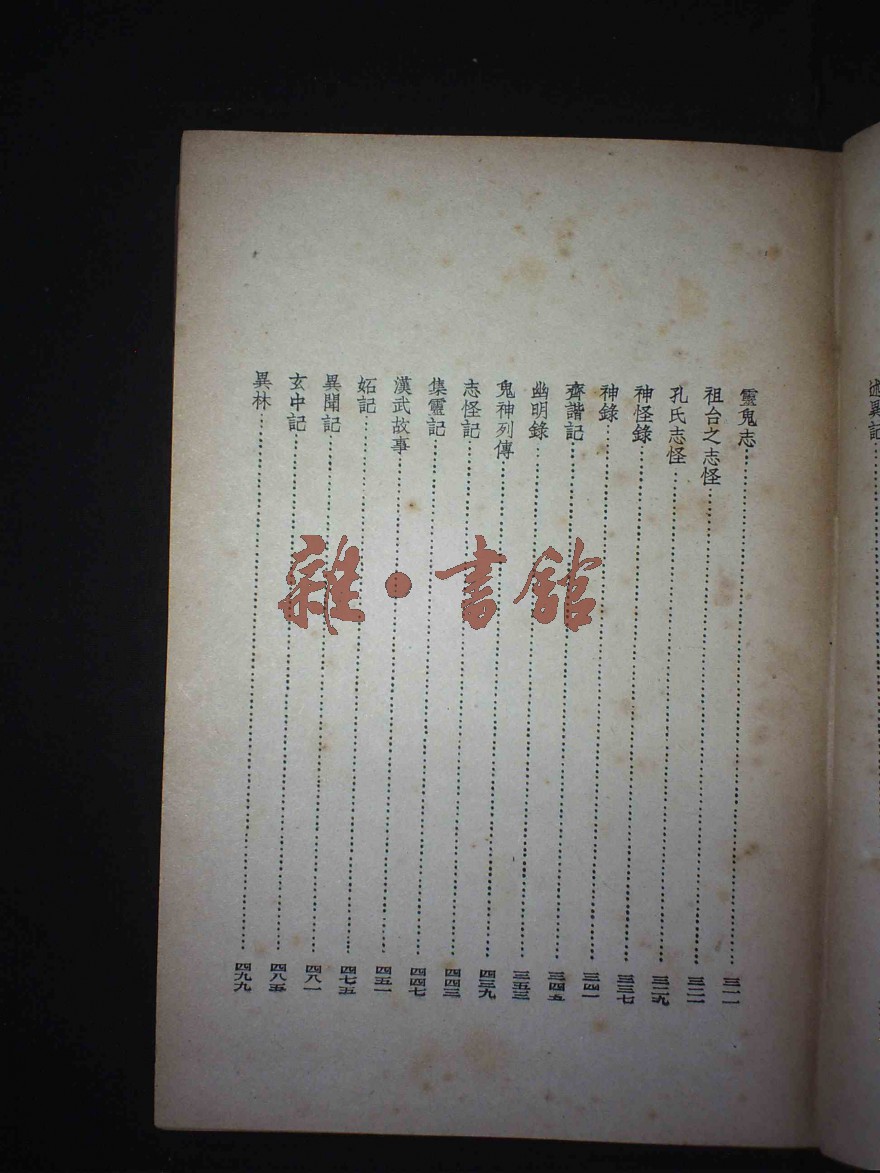 述異記
靈鬼志……三一一
祖台之志怪……三二一
孔氏志怪……三二九
神怪錄……三三七
神錄……三四一
齊諧記……三四五
幽明錄……三五三
鬼神列傳……四三九
志怪記……四四三
集靈記……四四七
漢武故事……四五一
妬記……四七五
異聞記……四八一
玄中記……四八五
異林……四九九
雜·書館